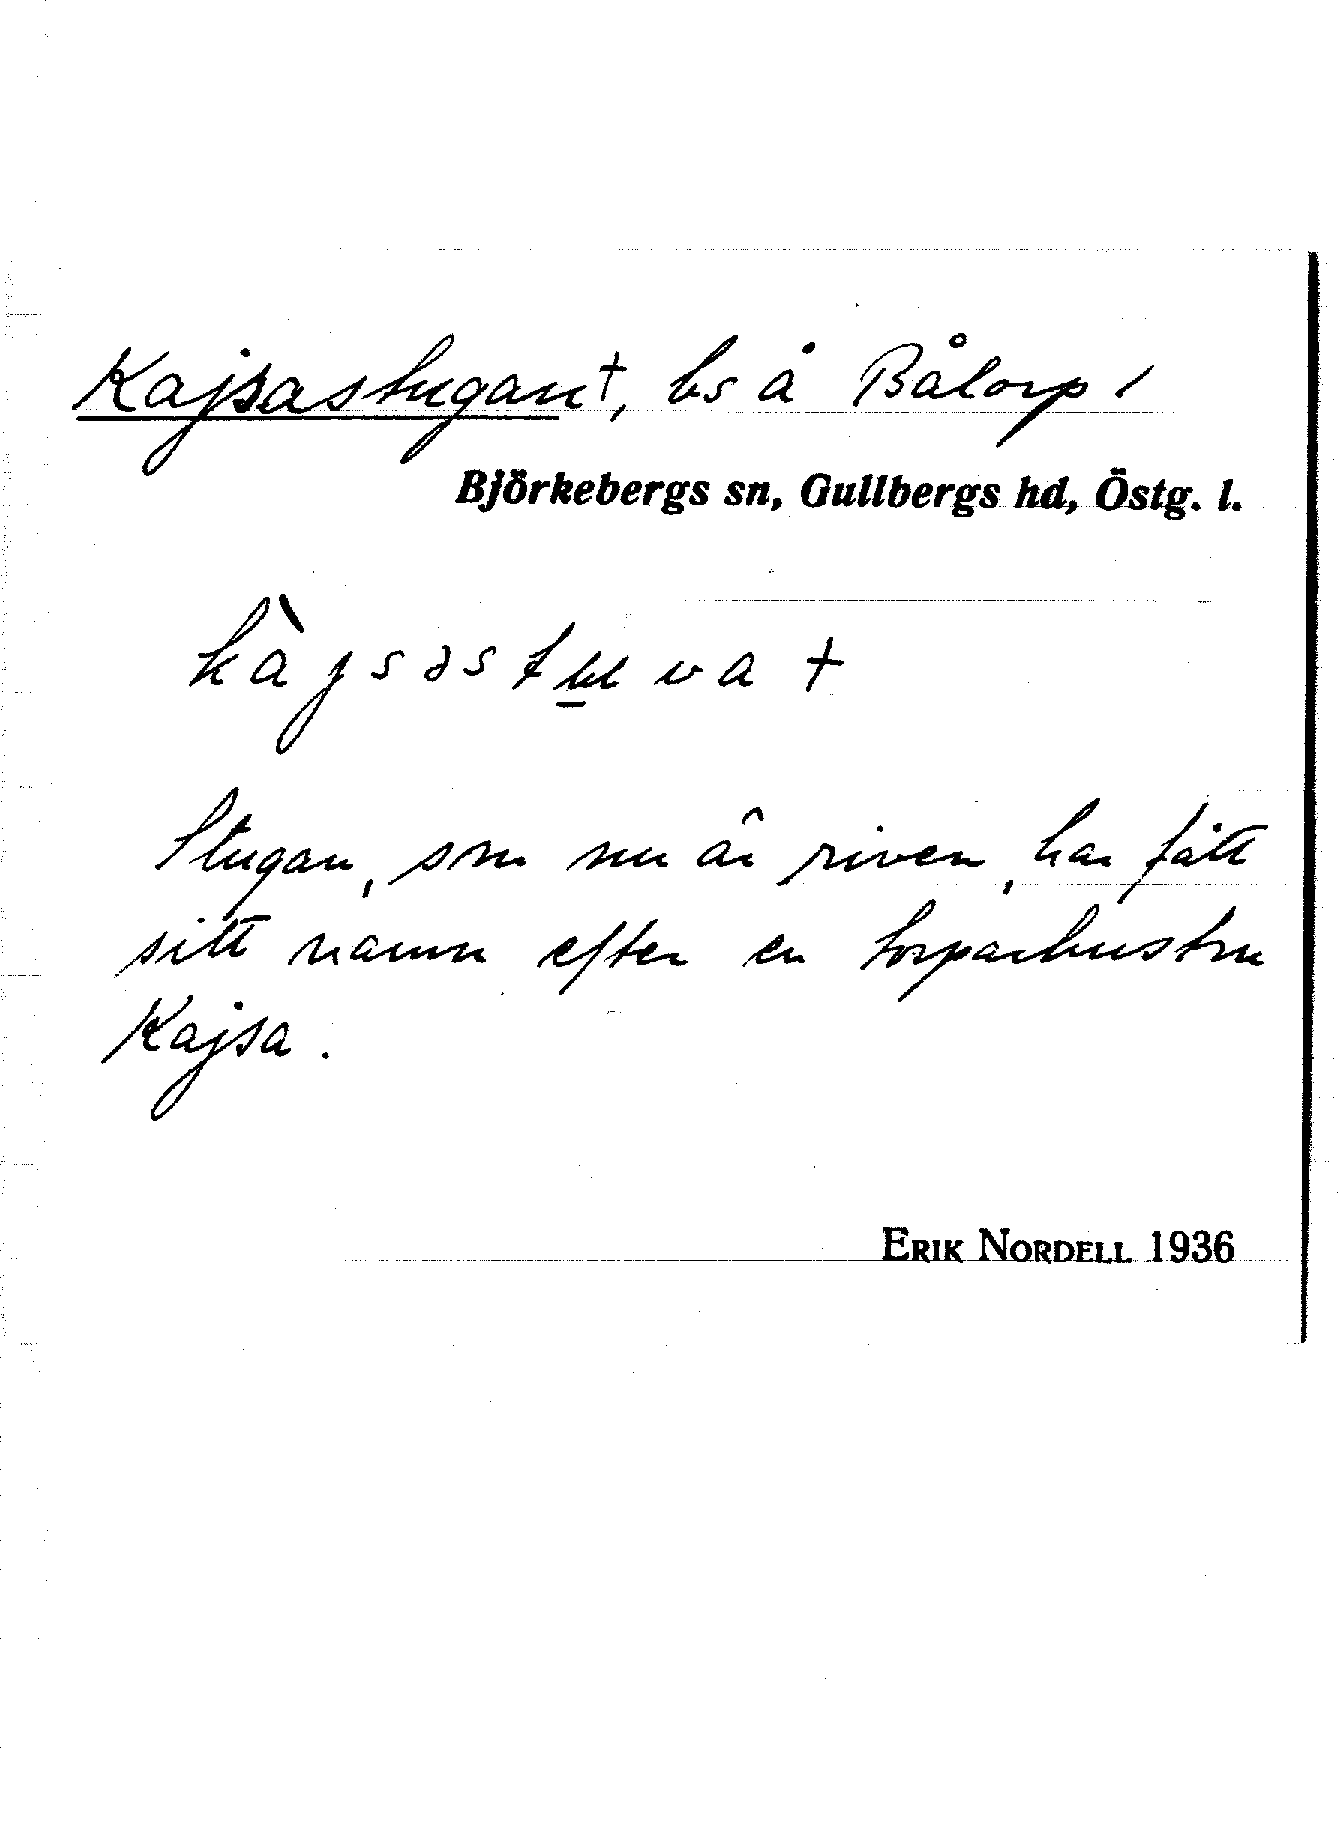 Kajsastugan†, bs å Bålorp 1
Björkebergs sn, Gullbergs hd, Östg. l.
kàjsəstu̲va †
Stugan, som nu är riven, har fått
sitt namn efter en torparhustru
Kajsa.
ERIK NORDELL 1936